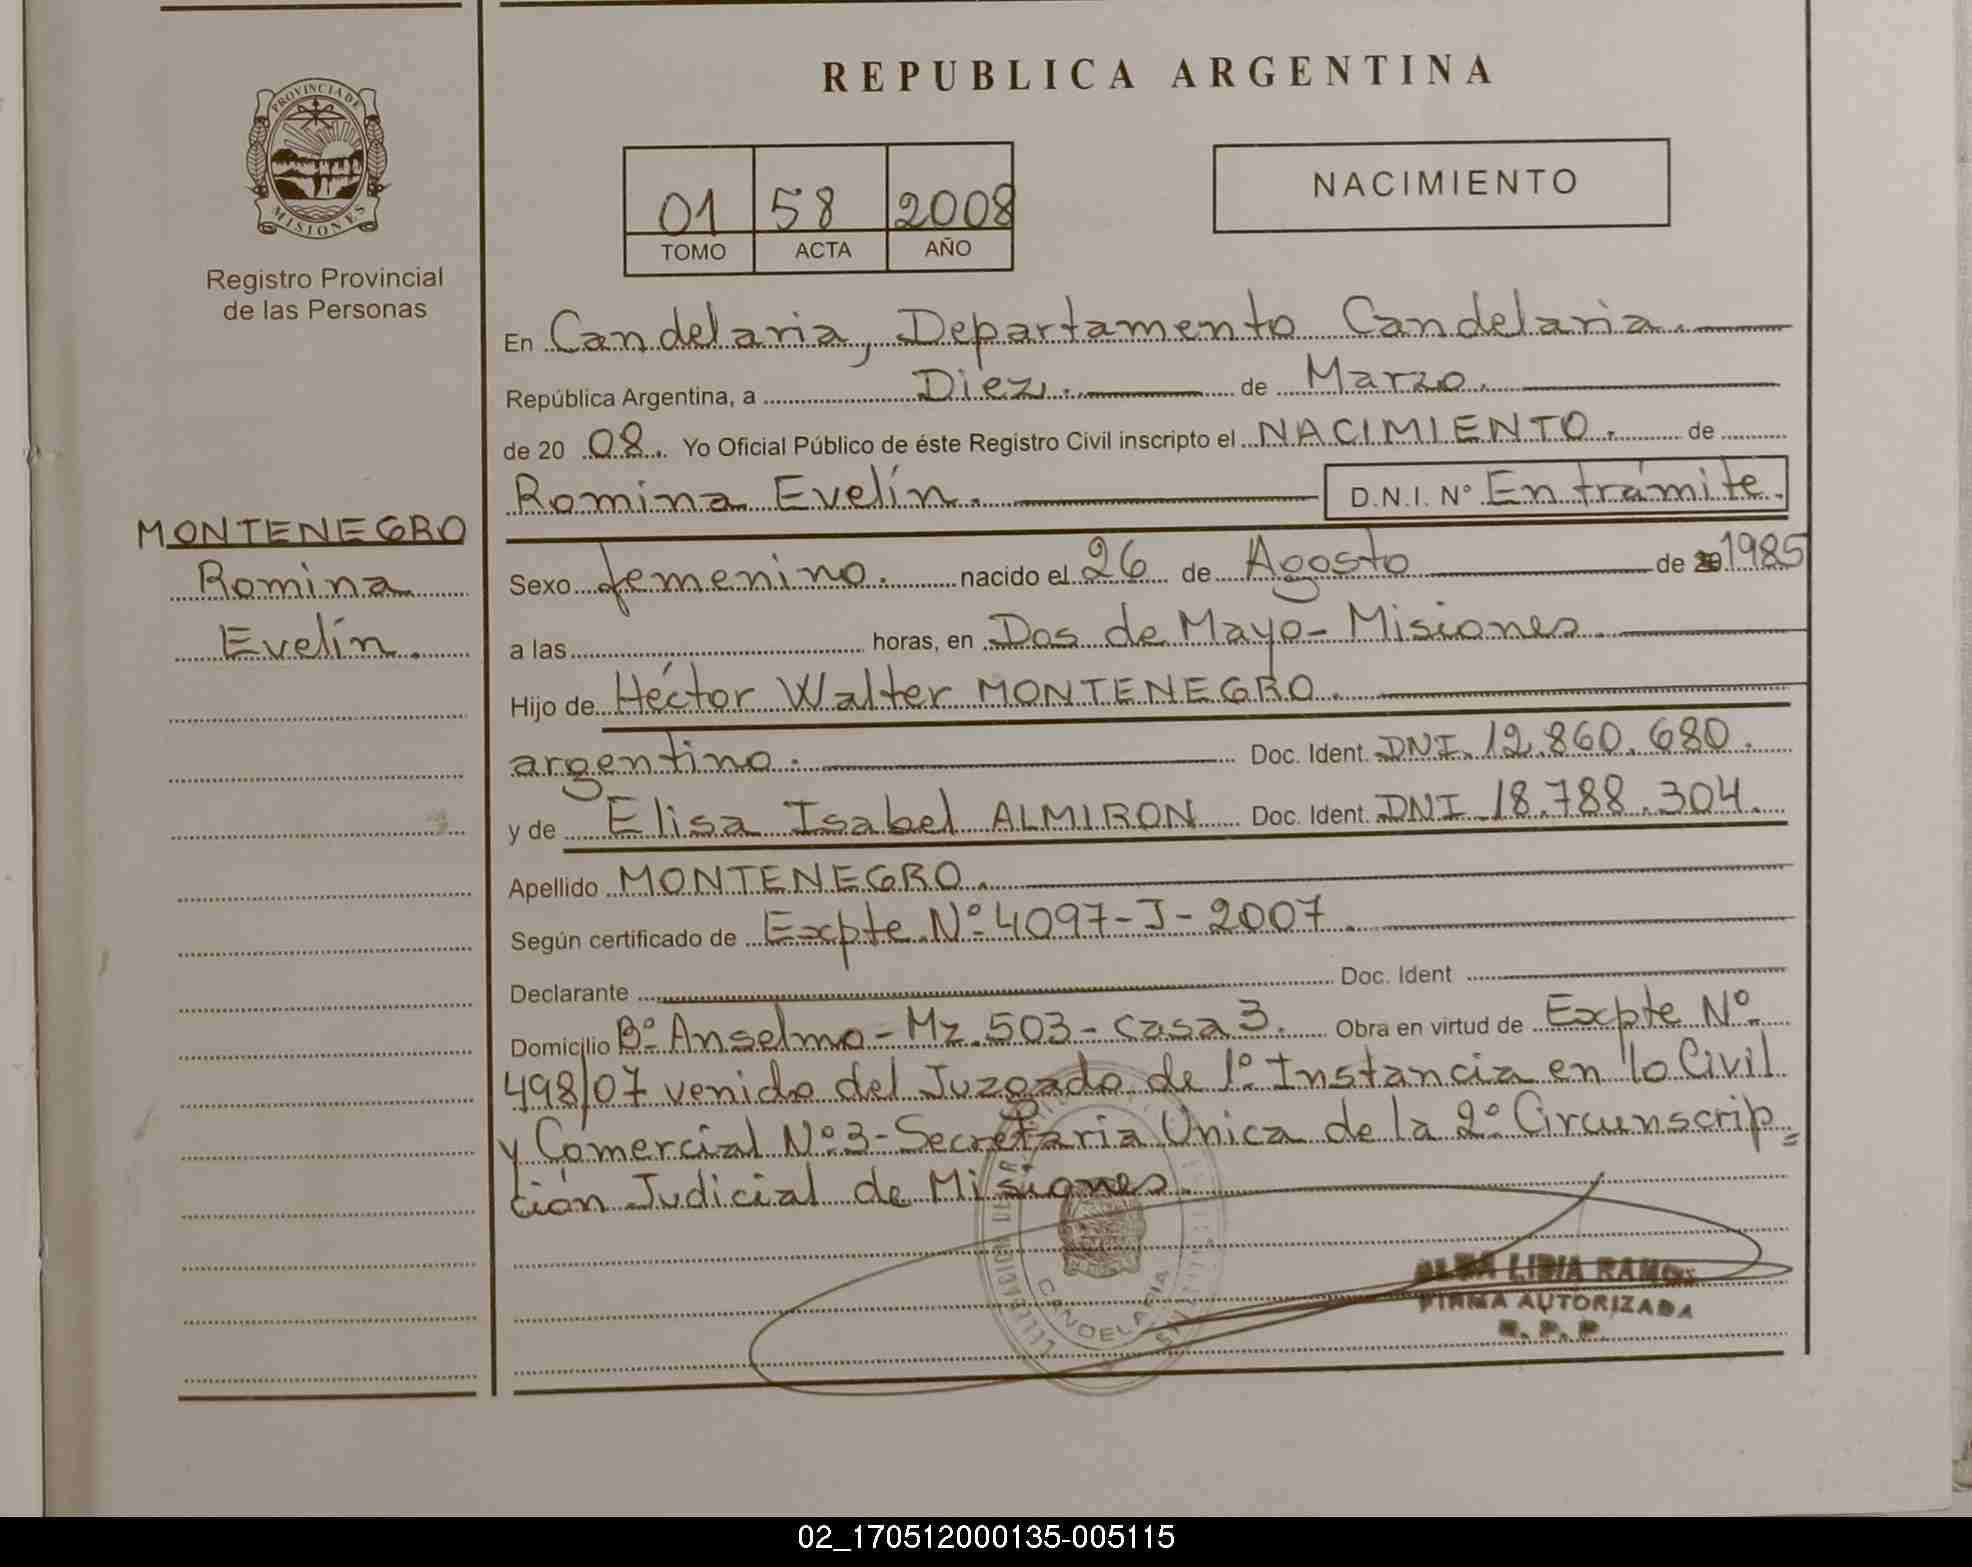 REPUBLICA ARGENTINA
PROVINCIA DE
MISIONES
Registro Provincial
de las Personas
01 58 2008
TOMO ACTA AÑO
NACIMIENTO
En Candelaria, Departamento Candelaria.
República Argentina, a Diez. de Marzo.
de 20 08. Yo Oficial Público de éste Registro Civil inscripto el NACIMIENTO. de
Romina Evelín. D.N.I. Nº En trámite.
MONTENEGRO
Romina
Evelín.
Sexo femenino. nacido el 26 de Agosto de 1985
a las horas, en Dos de Mayo - Misiones.
Hijo de Héctor Walter MONTENEGRO.
argentino. Doc. Ident. DNI. 12.860.680.
y de Elisa Isabel ALMIRON Doc. Ident. DNI 18.788.304.
Apellido MONTENEGRO.
Según certificado de Expte Nº 4097-J-2007.
Declarante Doc. Ident
Domicilio Bº Anselmo - Mz. 503 - casa 3. Obra en virtud de Expte Nº
498/07 venido del Juzgado de 1º Instancia en lo Civil
y Comercial Nº 3 - Secretaria Unica de la 2º Circunscrip=
ción Judicial de Misiones.
CANDELARIA
ALBA LIDIA RAMOS
FIRMA AUTORIZADA
R. P. P.
02_170512000135-005115